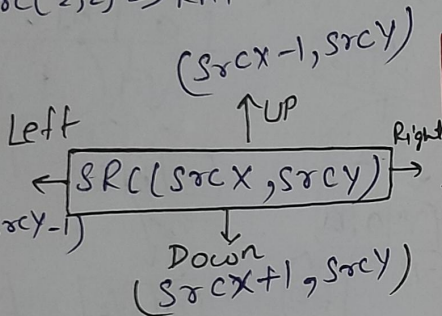 (SrcX-1, SrcY)
↑UP
Left
Right
←SRC(SrcX, SrcY)→
rcY-1)
Down
(SrcX+1, SrcY)